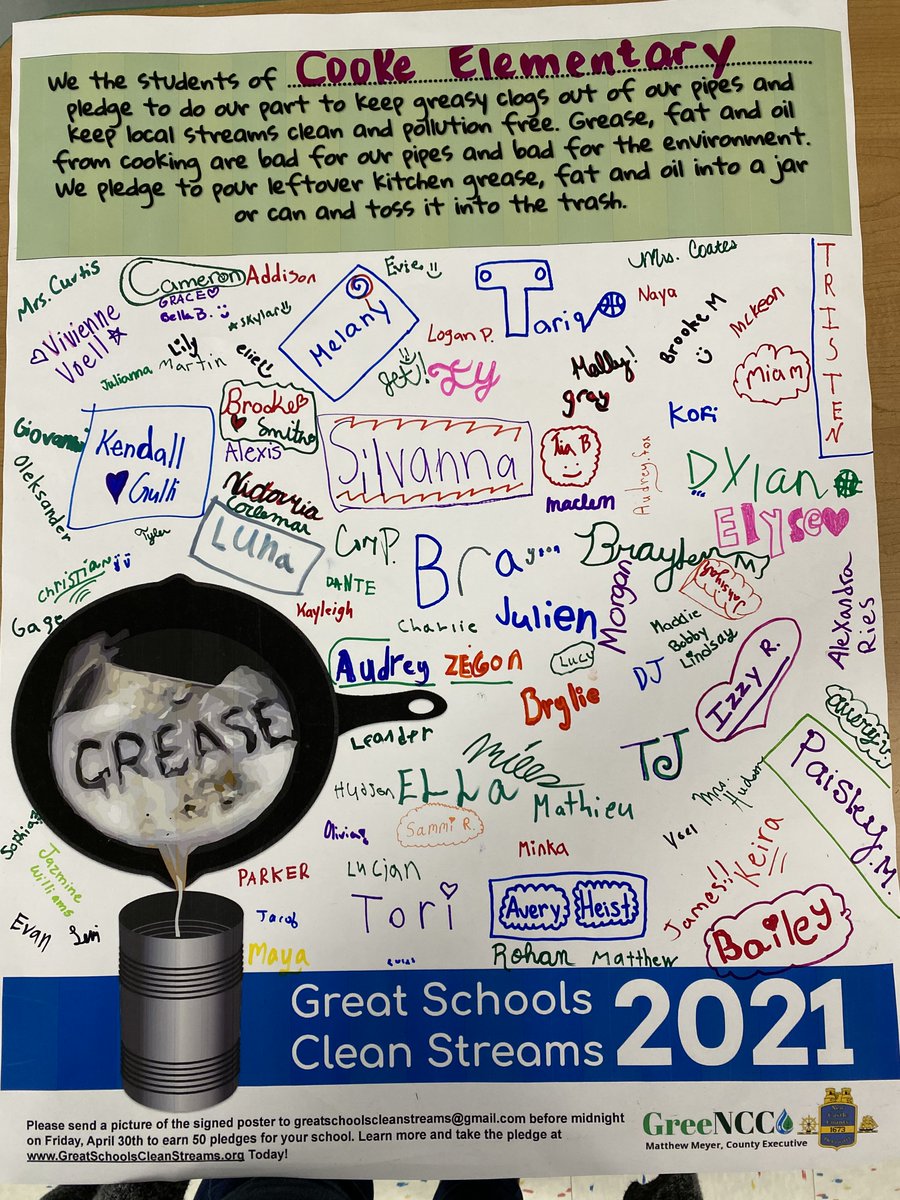 We the students of Cooke Elementary
pledge to do our part to keep greasy clogs out of our pipes and
keep local streams clean and pollution free. Grease, fat and oil
from cooking are bad for our pipes and bad for the environment.
We pledge to pour leftover kitchen grease, fat and oil into a jar
or can and toss it into the trash.
Mrs. Curtis
Cameron
Addison
Evie
Mrs. Coates
GRACE
Bella B.
Skylar
Melany
Tariq
Naya
Brooke M
McKeon
TRISTEN
Vivienne
Voell
Lily
Martin
Julianna
Logan P.
Jet!
Ty
Molly!
gray
Miam
Kofi
Giovanni
Kendall
Gulli
Brooke
Smith
Alexis
Silvanna
Tia B
Audrey.fox
Dylan
Oleksander
Victoria
Coleman
Maclen
Elyse
Tyler
Luna
Cory P.
Bray...
Braylen M
Christian
DANTE
Morgan
Alexandra
Ries
Gage
Kayleigh
Charlie
Julien
Maddie
Bobby
Lindsay
Audrey
ZEIGON
Lucy
DJ
Izzy R.
Brylie
GREASE
Leander
Miles
TJ
Avery V.
Paisley M.
Hudson
ELLa
Mathieu
Mrs. Hudson
Sophia
Olivia
Sammi R.
Minka
Voel
Keira
Jazmine
Williams
PARKER
Lucjan
James!!
Evan
Levi
Jacob
Tori
Avery Heist
Bailey
Maya
Rohan
Matthew
Great Schools
Clean Streams 2021
Please send a picture of the signed poster to greatschoolscleanstreams@gmail.com before midnight
on Friday, April 30th to earn 50 pledges for your school. Learn more and take the pledge at
www.GreatSchoolsCleanStreams.org Today!
GreeNCC
Matthew Meyer, County Executive
New Castle County
1673
Delaware